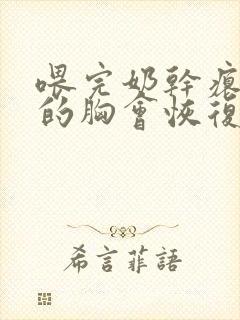 喂完奶幹癟
的胸會恢復
希言菲語